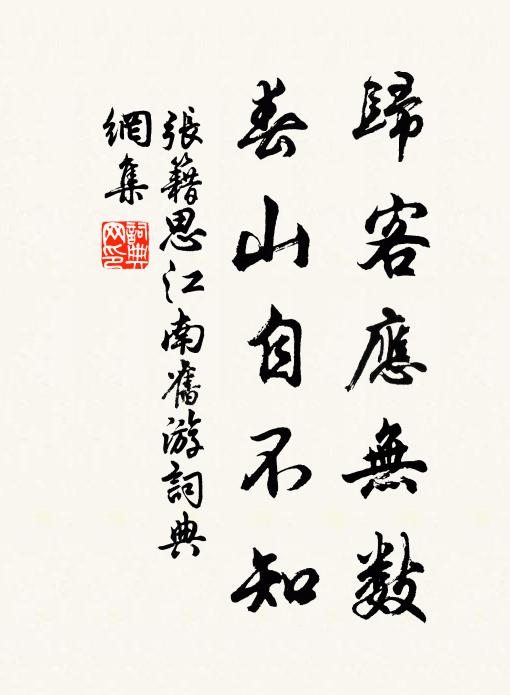 歸客應無數
春山自不知
張籍思江南舊游詞典
網集
詞典
网印